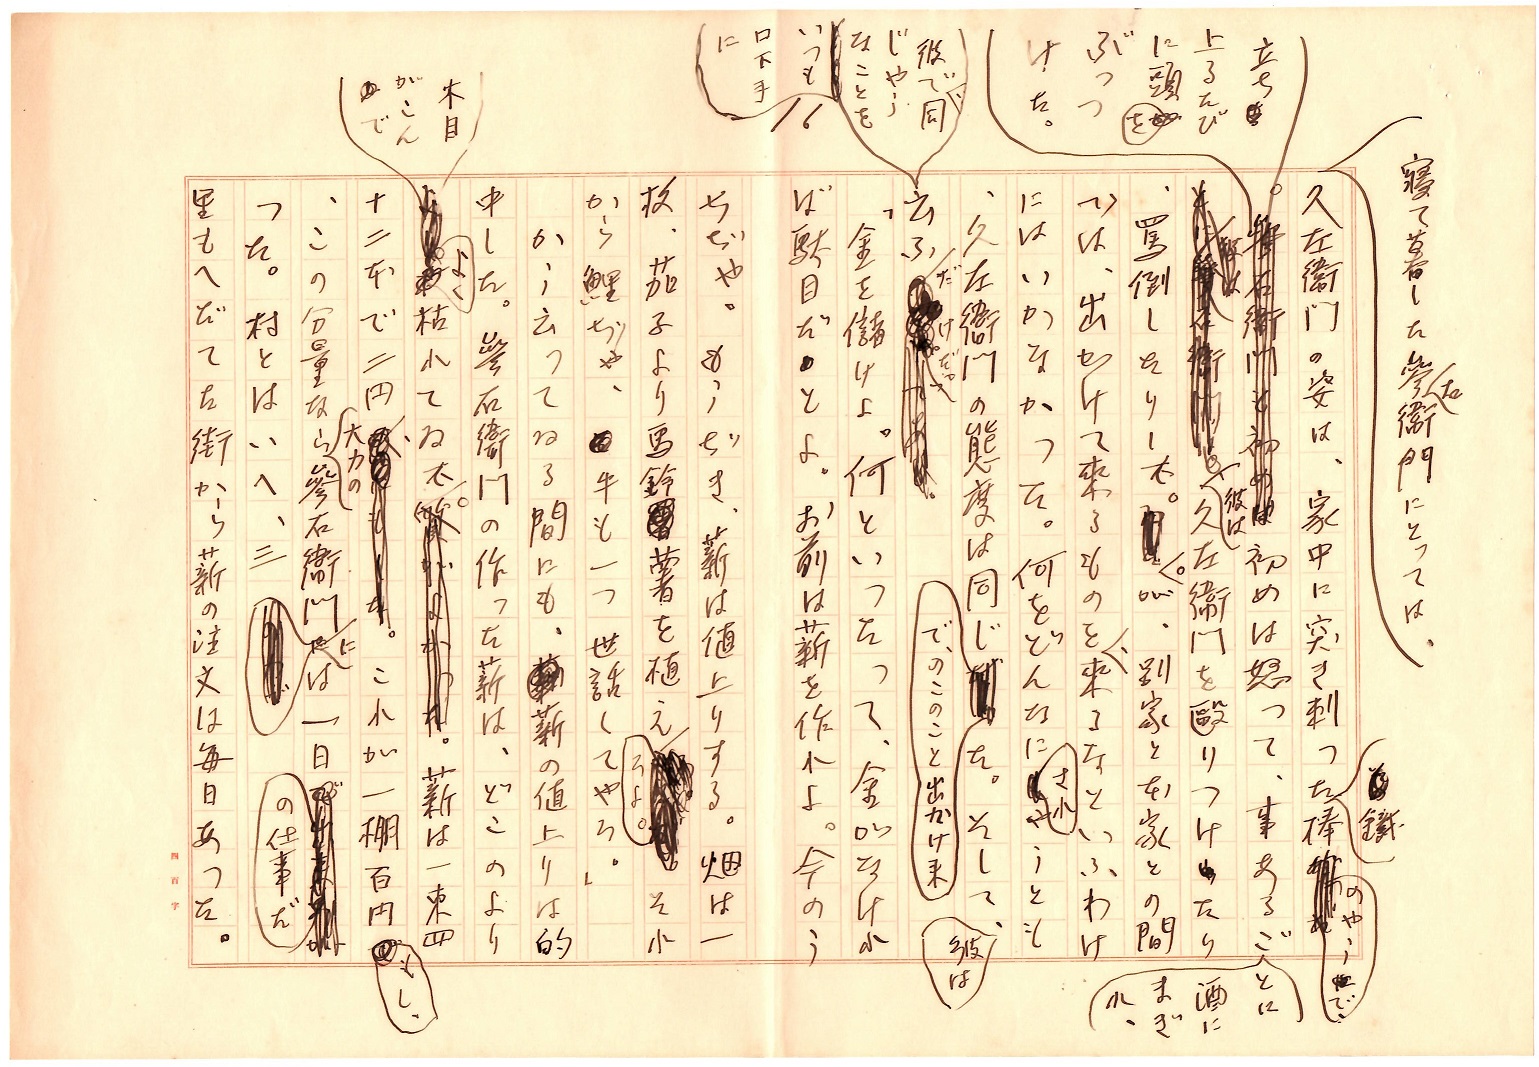 寝て暮した參右衛門にとつては、
久左衛門の姿は、家中に突き刺つた棒
鐵
のやうで、
立ち
上るたび
に頭を
ぶつつ
けた。
初めは怒つて、事あるごとに
酒に
まぎ
れ、
彼は
久左衛門を毆りつけたり
、罵倒したりした。が、別家と本家との間
では、出かけて来るものを、来るなといふわけ
にはいかなかつた。何をどんなにされやうとも
、久左衛門の態度は同じ
で、のこのこと出かけ来
た。そして、
彼は
彼で同
じやう
なことを
云ふ
だけだつた
「金を儲けよ。何といつたつて、金がなけれ
ば駄目だとよ。お前は薪を作れよ。今のう
16
いつも
口下手
に
ちぢや。もうぢき、薪は値上りする。畑は一
枚、茄子より馬鈴薯を植えろよ。それ
から鯉ぢや、牛も一つ世話してやろ。」
かう云つてゐる間にも、薪の値上りは的
中した。參右衛門の作つた薪は、どこのより
木目
がこん
で
よく枯れてゐた。薪は一束四
十二本で二円、これが一棚百円
もし、
、この分量なら大力の參右衛門には一日
の仕事だ
つた。村とはいへ、三
里もへだてた街から薪の注文は毎日あつた。
四百字